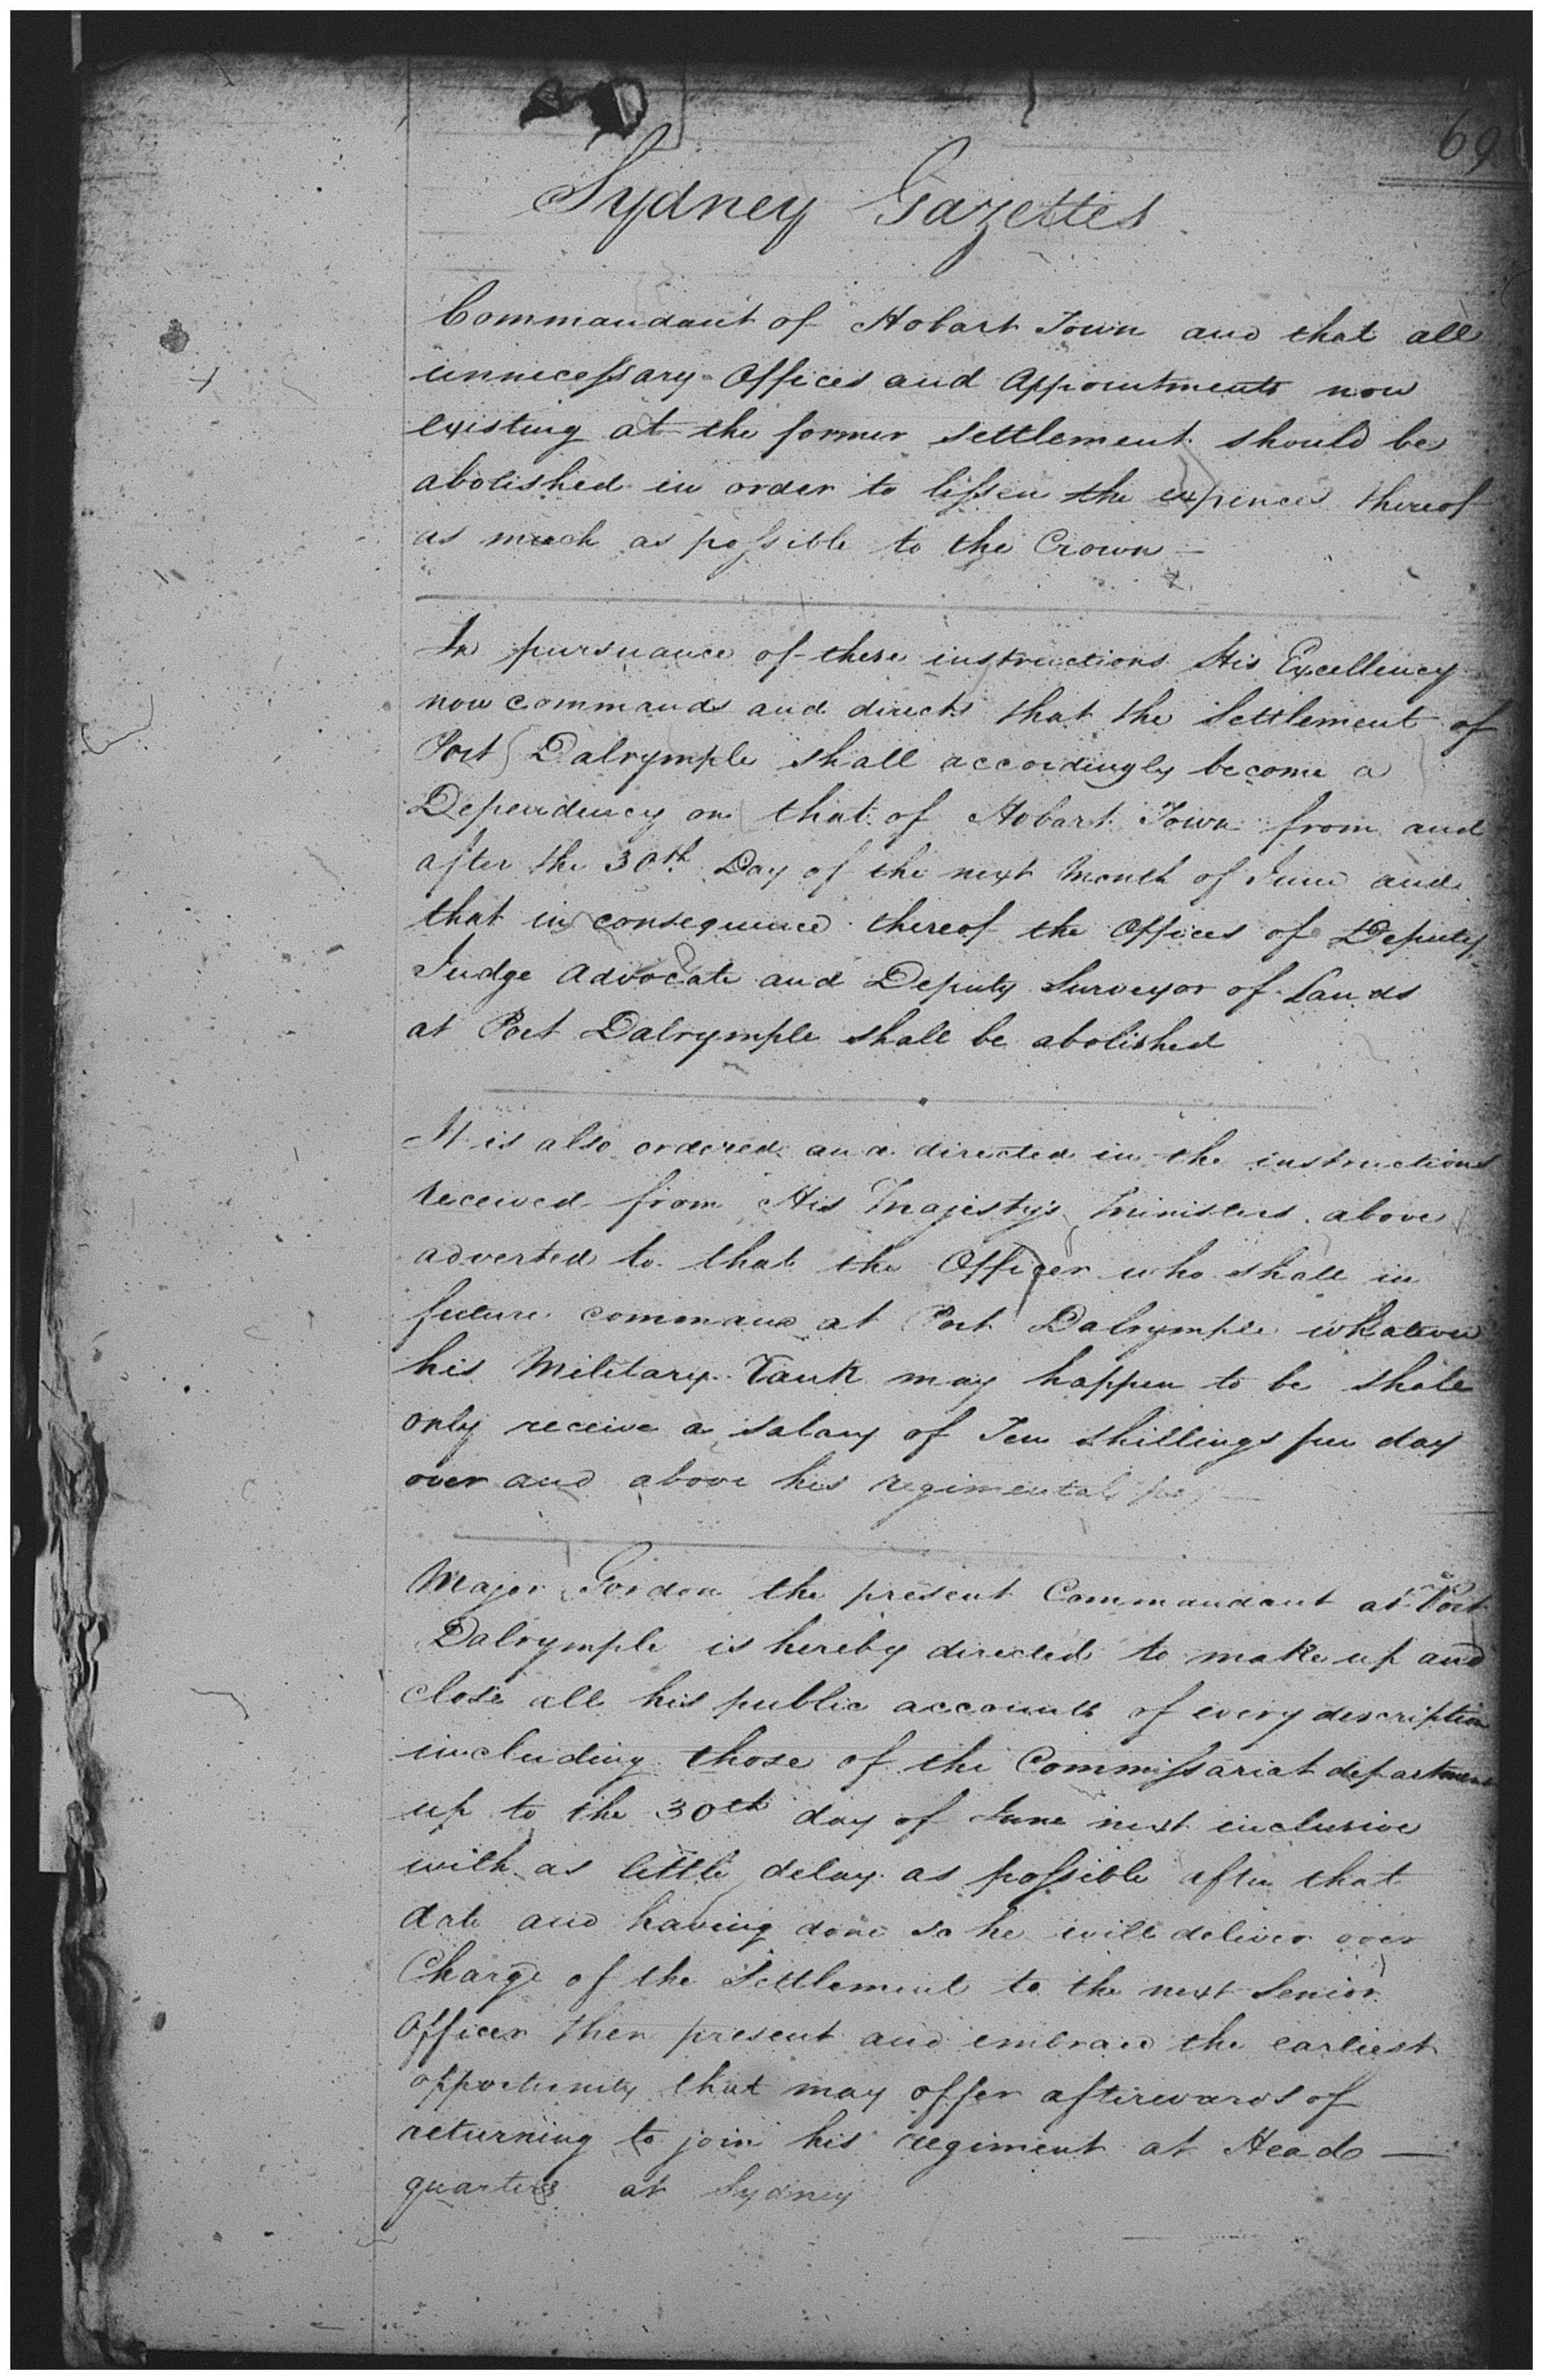 69
Sydney Gazettes
Commandant of Hobart Town and that all
unnecessary Offices and Appointments now
existing at the former settlement should be
abolished in order to lessen the expences thereof
as much as possible to the Crown —
In pursuance of these instructions His Excellency
now commands and directs that the Settlement of
Port Dalrymple shall accordingly become a
Dependency on that of Hobart Town from and
after the 30th Day of the next Month of June and
that in consequence thereof the Offices of Deputy
Judge Advocate and Deputy Surveyor of Lands
at Port Dalrymple shall be abolished
It is also ordered and directed in the instructions
received from His Majesty's Ministers above
adverted to that the Officer who shall in
future command at Port Dalrymple whatever
his Military Rank may happen to be shall
only receive a salary of Ten shillings per day
over and above his regimental pay —
Major Gordon the present Commandant at Port
Dalrymple is hereby directed to make up and
close all his public accounts of every description
including those of the Commissariat department
up to the 30th day of June next inclusive
with as little delay as possible after that
date and having done so he will deliver over
Charge of the Settlement to the next Senior
Officer then present and embrace the earliest
opportunity that may offer afterwards of
returning to join his regiment at Head —
quarters at Sydney